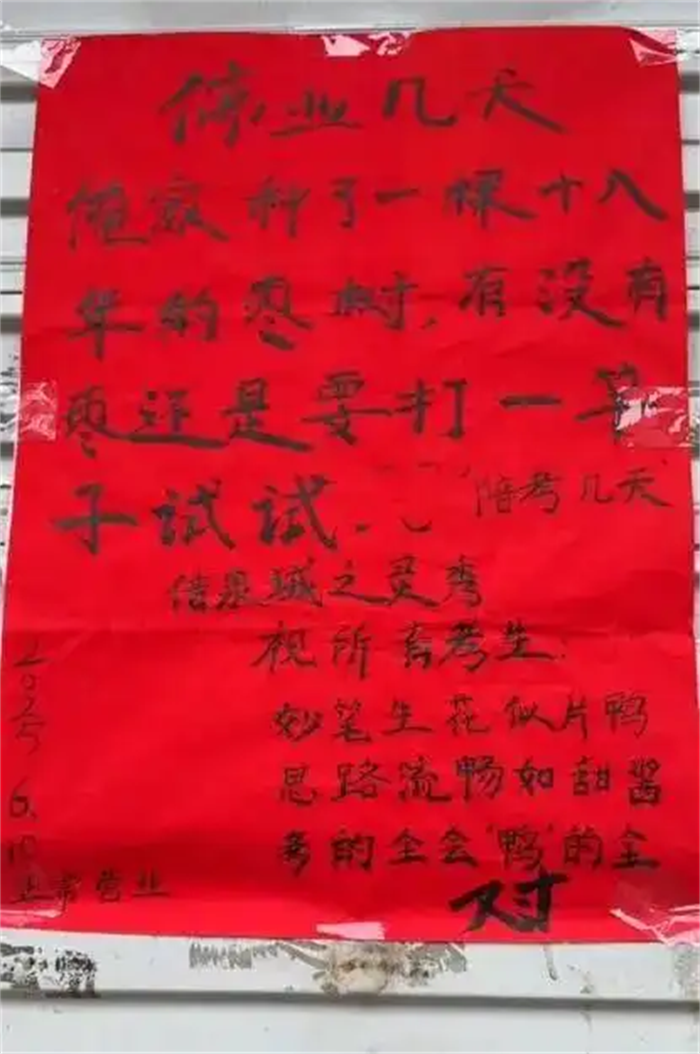 停业几天
俺家种了一棵十八
年的枣树,有没有
枣还是要打一竿
子试试.
"陪考几天"
祝所有考生:
妙笔生花似片鸭
思路流畅如甜酱
考的全会"鸭"的全
对
2025
6.10
正常营业